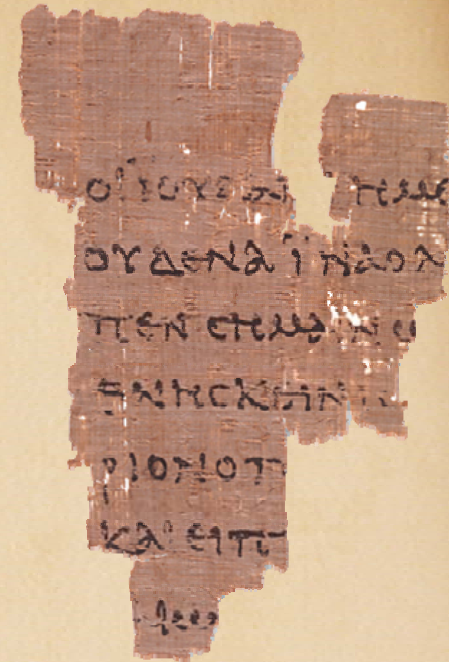 ΟΙΪΟΥΔΑΙ ΗΜΕ
ΟΥΔΕΝΑΪΝΑΟΛ
ΠΕΝCΗΜΑΙΝω
ΘΝΗCΚΕΙΝ
ΡΙΟΝΟΠ
ΚΑΙΕΙΠ